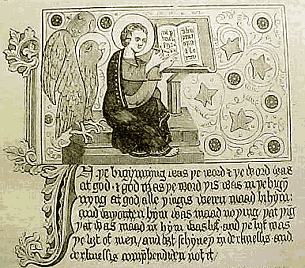 In þe bigynnyng was þe word & þe word was
at god · & god was þe word þis was in þe bigy
nyng at god alle þingis weren maad bi hym:
and wiþouten hym was maad no þing þat þīg
þat was maad in hym was lif · and þe lijf was
þe liȝt of men, and liȝt schyneþ in derknessis · and
derknessis comprehenden not it ·